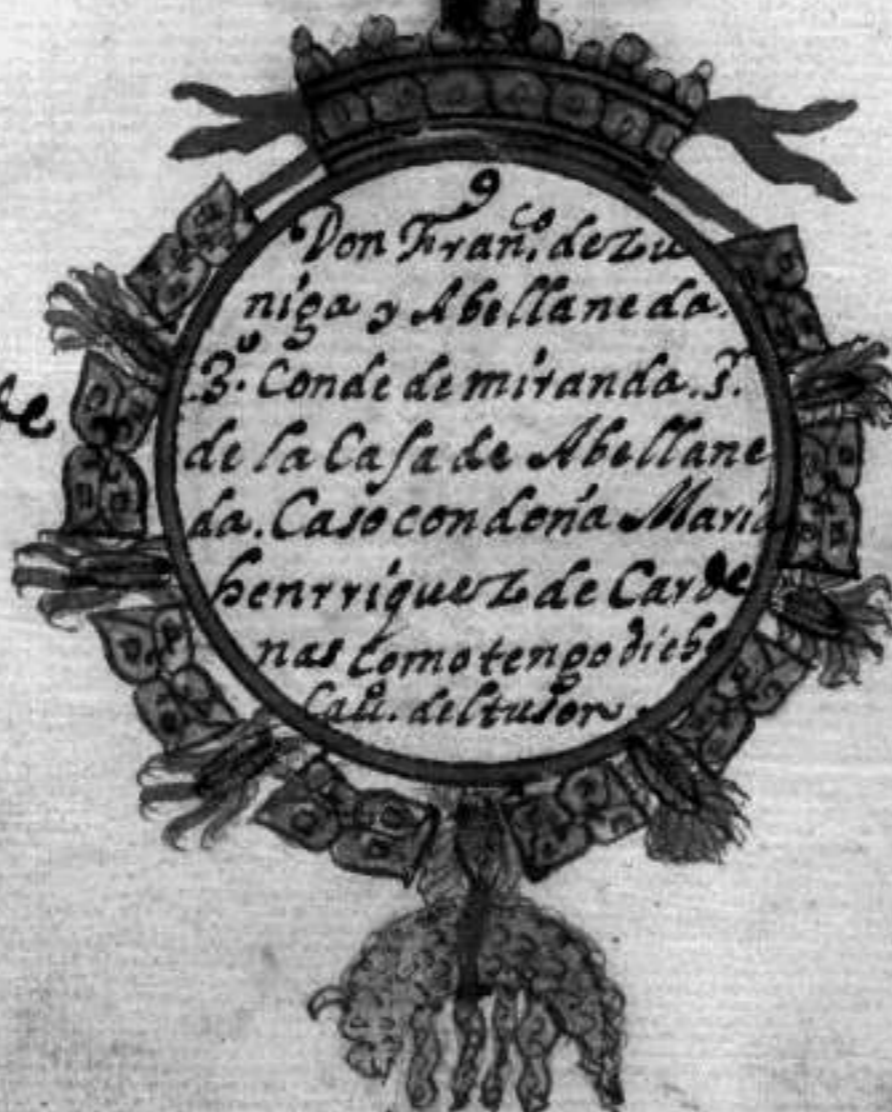 9
Don Fran.co de Zu
niga y Abellaneda.
3.º Conde de miranda. S.r
de la Casa de Abellane
da. Caso con doña Maria
henrriquez de Carde
nas como tengo dicho
Cau.º del tuson